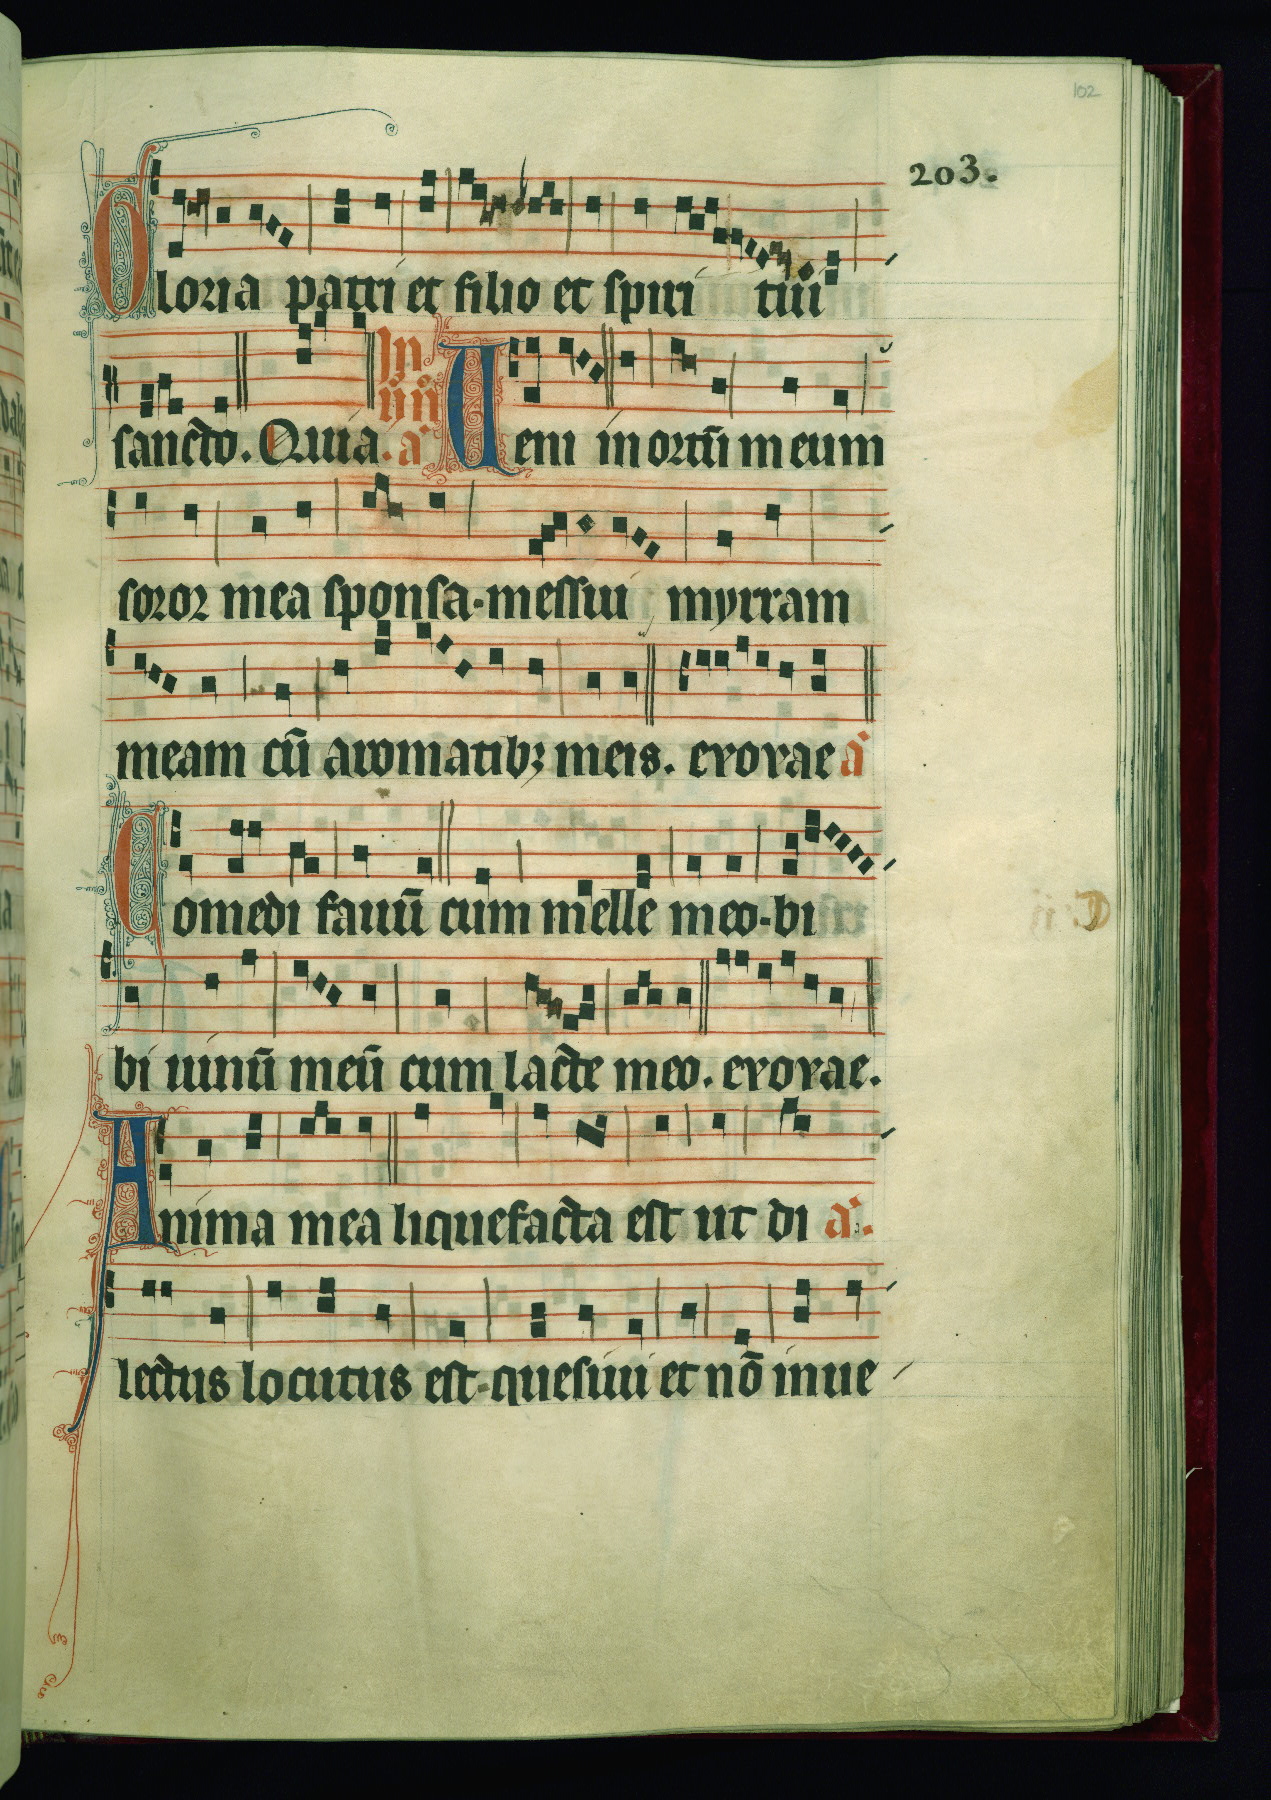 102
203.
Gloria patri et filio et spiri tui
sancto. Quia. In iiī a̓ Ueni in ortū meum
soror mea sponsa·messui myrram
meam cū aromatibꝫ meis. evovae a̓
Comedi fauū cum melle meo·bi
bi uinū meū cum lacte meo. evovae.
Anima mea liquefacta est ut di a̓.
lectus locutus est·quesiui et nō inue